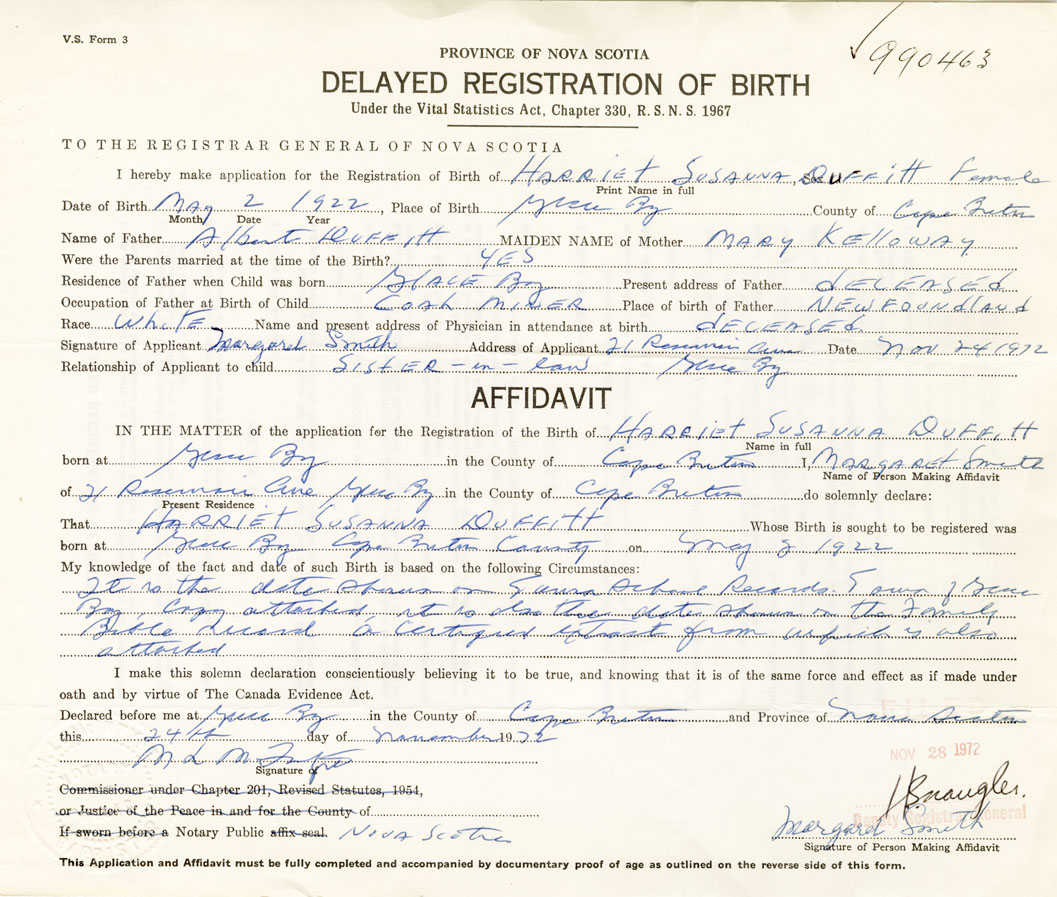 V.S. Form 3
990463
PROVINCE OF NOVA SCOTIA
DELAYED REGISTRATION OF BIRTH
Under the Vital Statistics Act, Chapter 330, R. S. N. S. 1967
TO THE REGISTRAR GENERAL OF NOVA SCOTIA
I hereby make application for the Registration of Birth of HARRIET SUSANNA DUFFITT Female
Print Name in full
Date of Birth May 2 1922, Place of Birth Glace Bay County of Cape Breton
Month Date Year
Name of Father Albert DUFFITT MAIDEN NAME of Mother MARY KELLOWAY
Were the Parents married at the time of the Birth? YES
Residence of Father when Child was born GLACE Bay Present address of Father DECEASED
Occupation of Father at Birth of Child COAL MINER Place of birth of Father NEWFOUNDLAND
Race WHITE Name and present address of Physician in attendance at birth DECEASED
Signature of Applicant Margaret Smith Address of Applicant 21 Reservoir Ave Date Nov 24 1972
Relationship of Applicant to child SISTER-in-law Glace Bay
AFFIDAVIT
IN THE MATTER of the application for the Registration of the Birth of HARRIET SUSANNA DUFFITT
Name in full
born at Glace Bay in the County of Cape Breton I, MARGARET Smith
Name of Person Making Affidavit
of 21 Reservoir Ave Glace Bay in the County of Cape Breton do solemnly declare:
Present Residence
That HARRIET SUSANNA DUFFITT Whose Birth is sought to be registered was
born at Glace Bay Cape Breton County on May 2 1922
My knowledge of the fact and date of such Birth is based on the following Circumstances:
It is the date shown on School Records Town of Glace
Bay, Copy attached, it is also the date shown in the Family
Bible record a Certified Extract from which is also
attached
I make this solemn declaration conscientiously believing it to be true, and knowing that it is of the same force and effect as if made under
oath and by virtue of The Canada Evidence Act.
Declared before me at Glace Bay in the County of Cape Breton and Province of Nova Scotia
this 24th day of November 1972
NOV 28 1972
Signature of
Commissioner under Chapter 201, Revised Statutes, 1954,
or Justice of the Peace in and for the County of
Deputy Registrar General
If sworn before a Notary Public affix seal. NOVA SCOTIA
Margaret Smith
Signature of Person Making Affidavit
This Application and Affidavit must be fully completed and accompanied by documentary proof of age as outlined on the reverse side of this form.